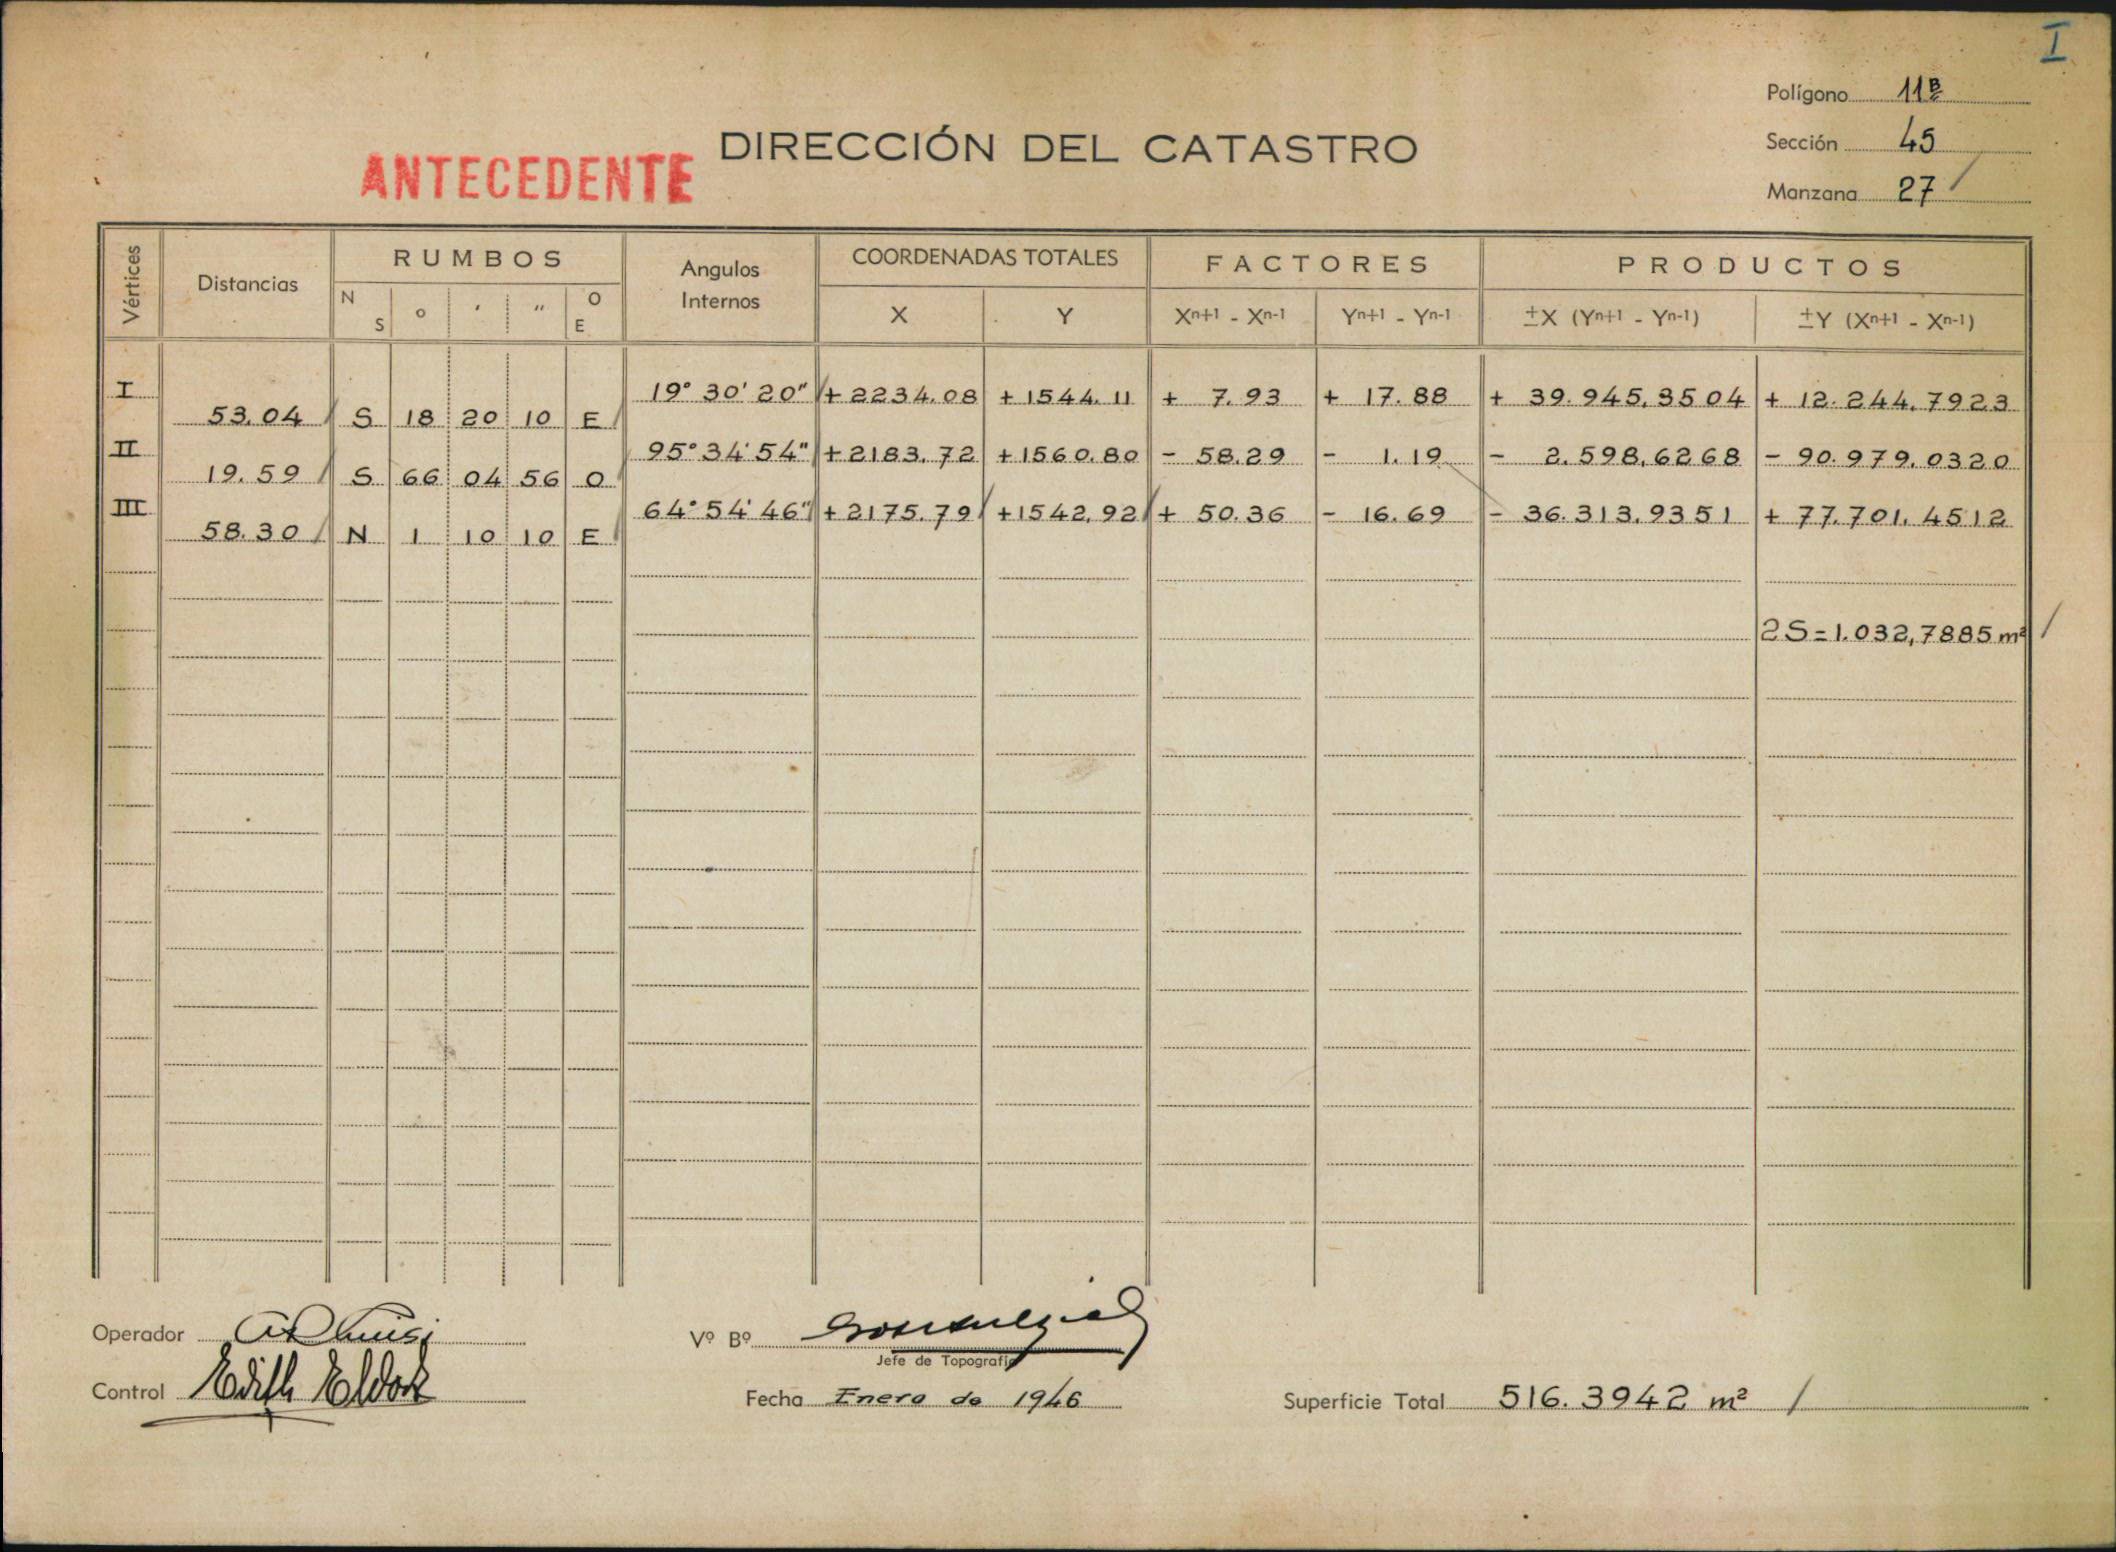 I
Polígono 11B
Sección 45
Manzana 27
DIRECCIÓN DEL CATASTRO
ANTECEDENTE
Vértices Distancias RUMBOS Angulos Internos COORDENADAS TOTALES FACTORES PRODUCTOS
N S o ' " O E X Y Xn+1 - Xn-1 Yn+1 - Yn-1 ±X (Yn+1 - Yn-1) ±Y (Xn+1 - Xn-1)
I 19° 30' 20" + 2234.08 + 1544.11 + 7.93 + 17.88 + 39.945,3504 + 12.244,7923
53.04 S 18 20 10 E
II 95° 34' 54" + 2183.72 + 1560.80 - 58.29 - 1.19 - 2.598,6268 - 90.979,0320
19.59 S 66 04 56 O
III 64° 54' 46" + 2175.79 + 1542.92 + 50.36 - 16.69 - 36.313,9351 + 77.701,4512
58.30 N 1 10 10 E
2S = 1.032,7885 m²
Operador
Vº Bº
Jefe de Topografía
Control Edith
Fecha Enero de 1946
Superficie Total 516.3942 m²